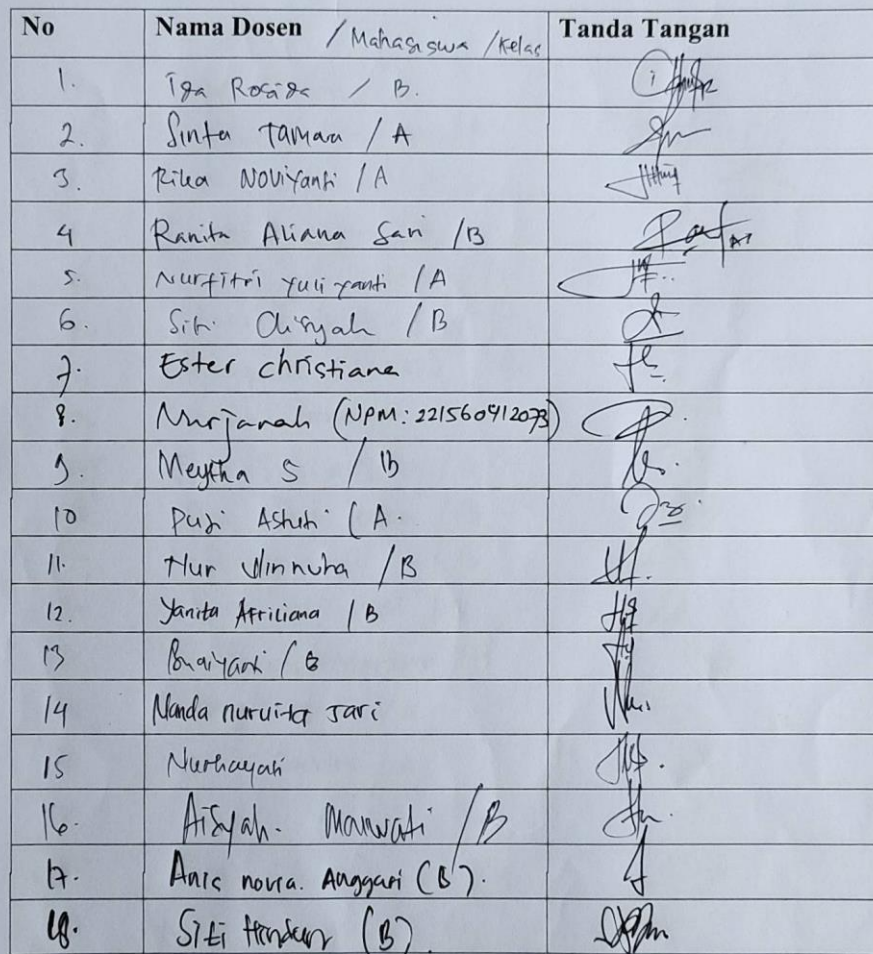 No Nama Dosen / Mahasiswa / Kelas Tanda Tangan
1. Ida Rosida / B.
2. Sinta Tamara / A
3. Rika Noviyanti / A
4 Ranita Aliana Sari / B
5. Nurfitri Yuliyanti / A
6. Siti Aisyah / B
7. Ester christiana
8. Nurjanah (NPM: 221560412073)
9. Meytha S / B
10 Puji Astuti ( A.
11. Nur / B
12. Yanita Afriliana / B
13 / B
14 Nanda nurvita sari
15 Nurhayati
16. Aisyah. Marwati / B
17. Anis novia. Anggari (B).
18. Siti (B)